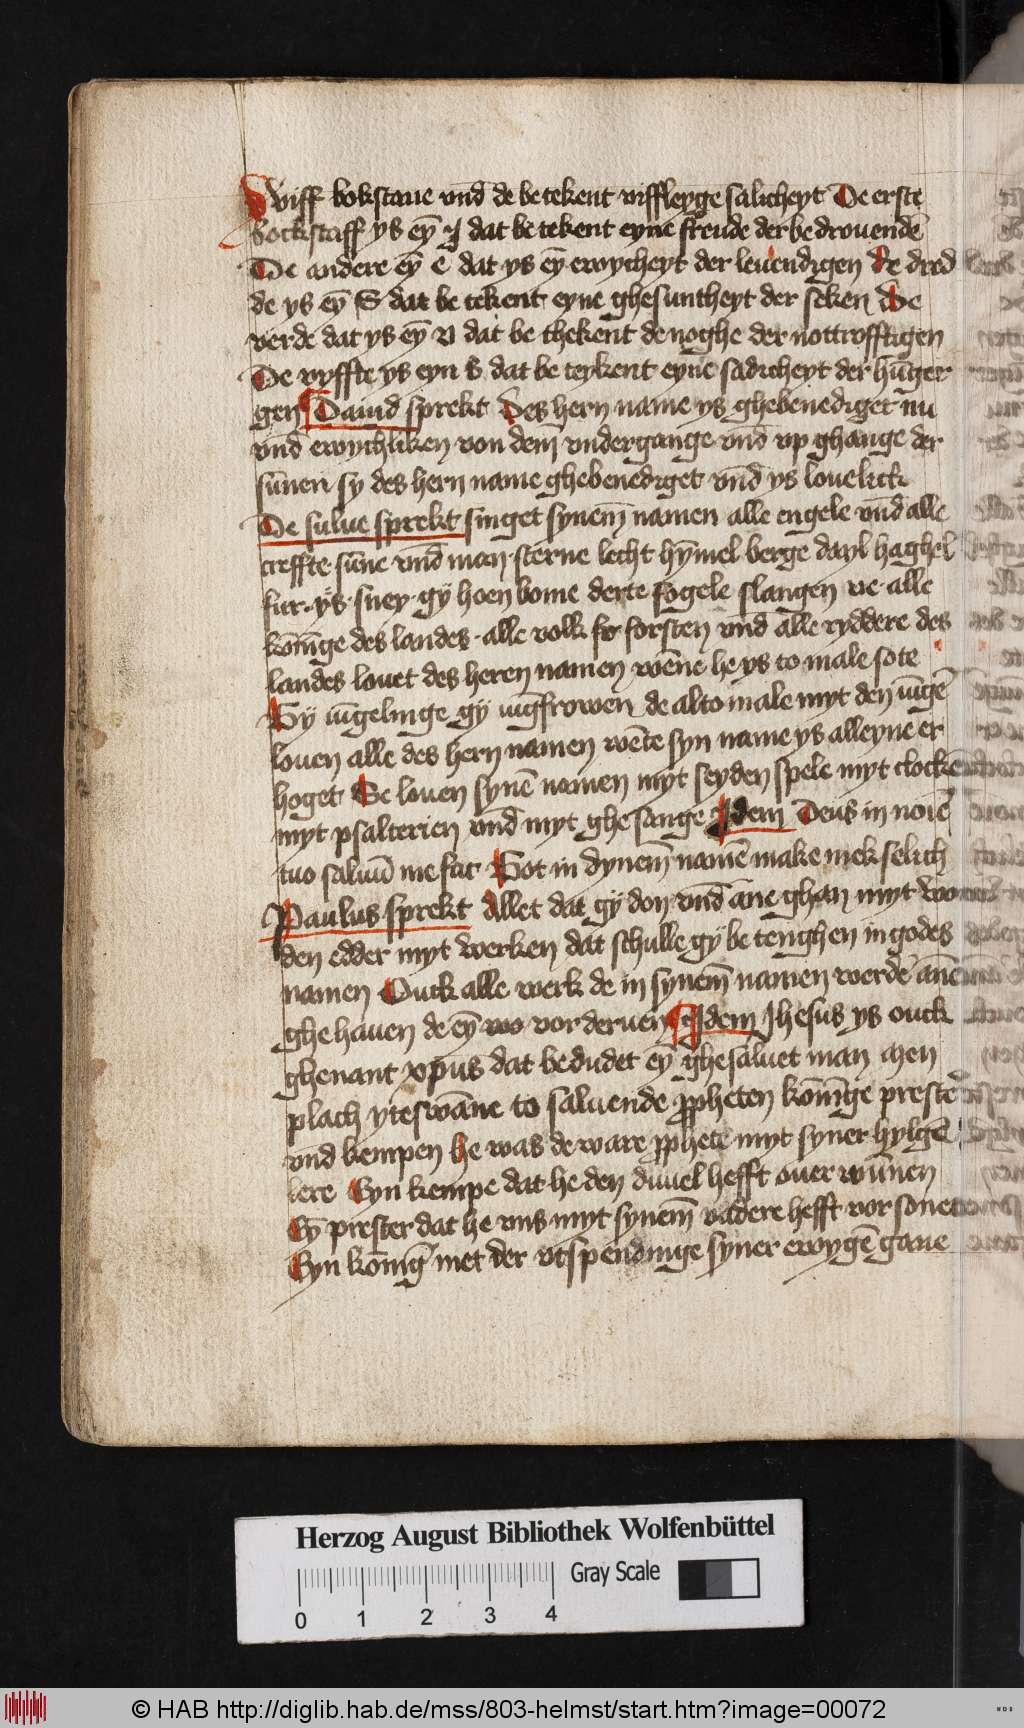 viff bokstaue vnd̄ de be tekent viffleyge salicheyt De erste
bockstaff ys eȳ J dat be tekent eyne freude der bedrouendē
De andere eȳ e dat ys eȳ ewycheyt der leuendigen de drod
de ys eȳ S dat be tekent eyne ghesuntheyt der seken De
verde dat ys eȳ v dat be thekent de noghe der nottrofftigen
De vyffte ys eyn S dat be teykent eyne sadicheyt der hūger
gen Dauid sprekt Des hern name ys ghebenediget nu
vnd ewychliken von dem vndergange vnd̄ vp ghange der
sūnen sy des hern name ghebenediget vnd̄ ys louelick
De sulue sprekt singet synem̄ namen alle engele vnd̄ alle
creffte sūne vnd̄ mon sterne lecht hȳmel berge dayl haghel
fur ys sney gy hoen bome derte fogele slangen ve alle
kōnīge des landes alle volk forsten vnd alle ryddere des
landes louet des heren namen wēne he ys to male sote
Gy iūgelinge gy iūgfrowen de alto male myt den iūgē
louen alle des hern namen wēte syn name ys alleyne er
hoget Se louen synē namen myt seyden spele myt clockē
myt psalterien vnd̄ myt ghesange Jdem Deus in noīe
tuo saluū me fac Got in dynem̄ namē make mek selich
Paulus sprekt Allet dat gy don vnd̄ ane ghan myt wor
den edder myt werken dat schulle gy be tenghen in godes
namen Ouck alle werk de in synem̄ namen werdē anē
ghe hauen de eȳ wo vorderuen Jdem Jhesus ys ouck
ghenant xpus dat bedudet eȳ ghesaluet man men
plach yteswāne to saluende ppheten kōnīge prestē
vnd kempen he was de ware pphete myt syner hylgē
lere Eyn kempe dat he den duuel hefft ouer wūnen
Eȳ prester dat he vns myt synem̄ vadere hefft vor sonet
Eyn konīg met der vtspendinge syner ewygē gaue
Herzog August Bibliothek Wolfenbüttel
Gray Scale
0 1 2 3 4
© HAB http://diglib.hab.de/mss/803-helmst/start.htm?image=00072